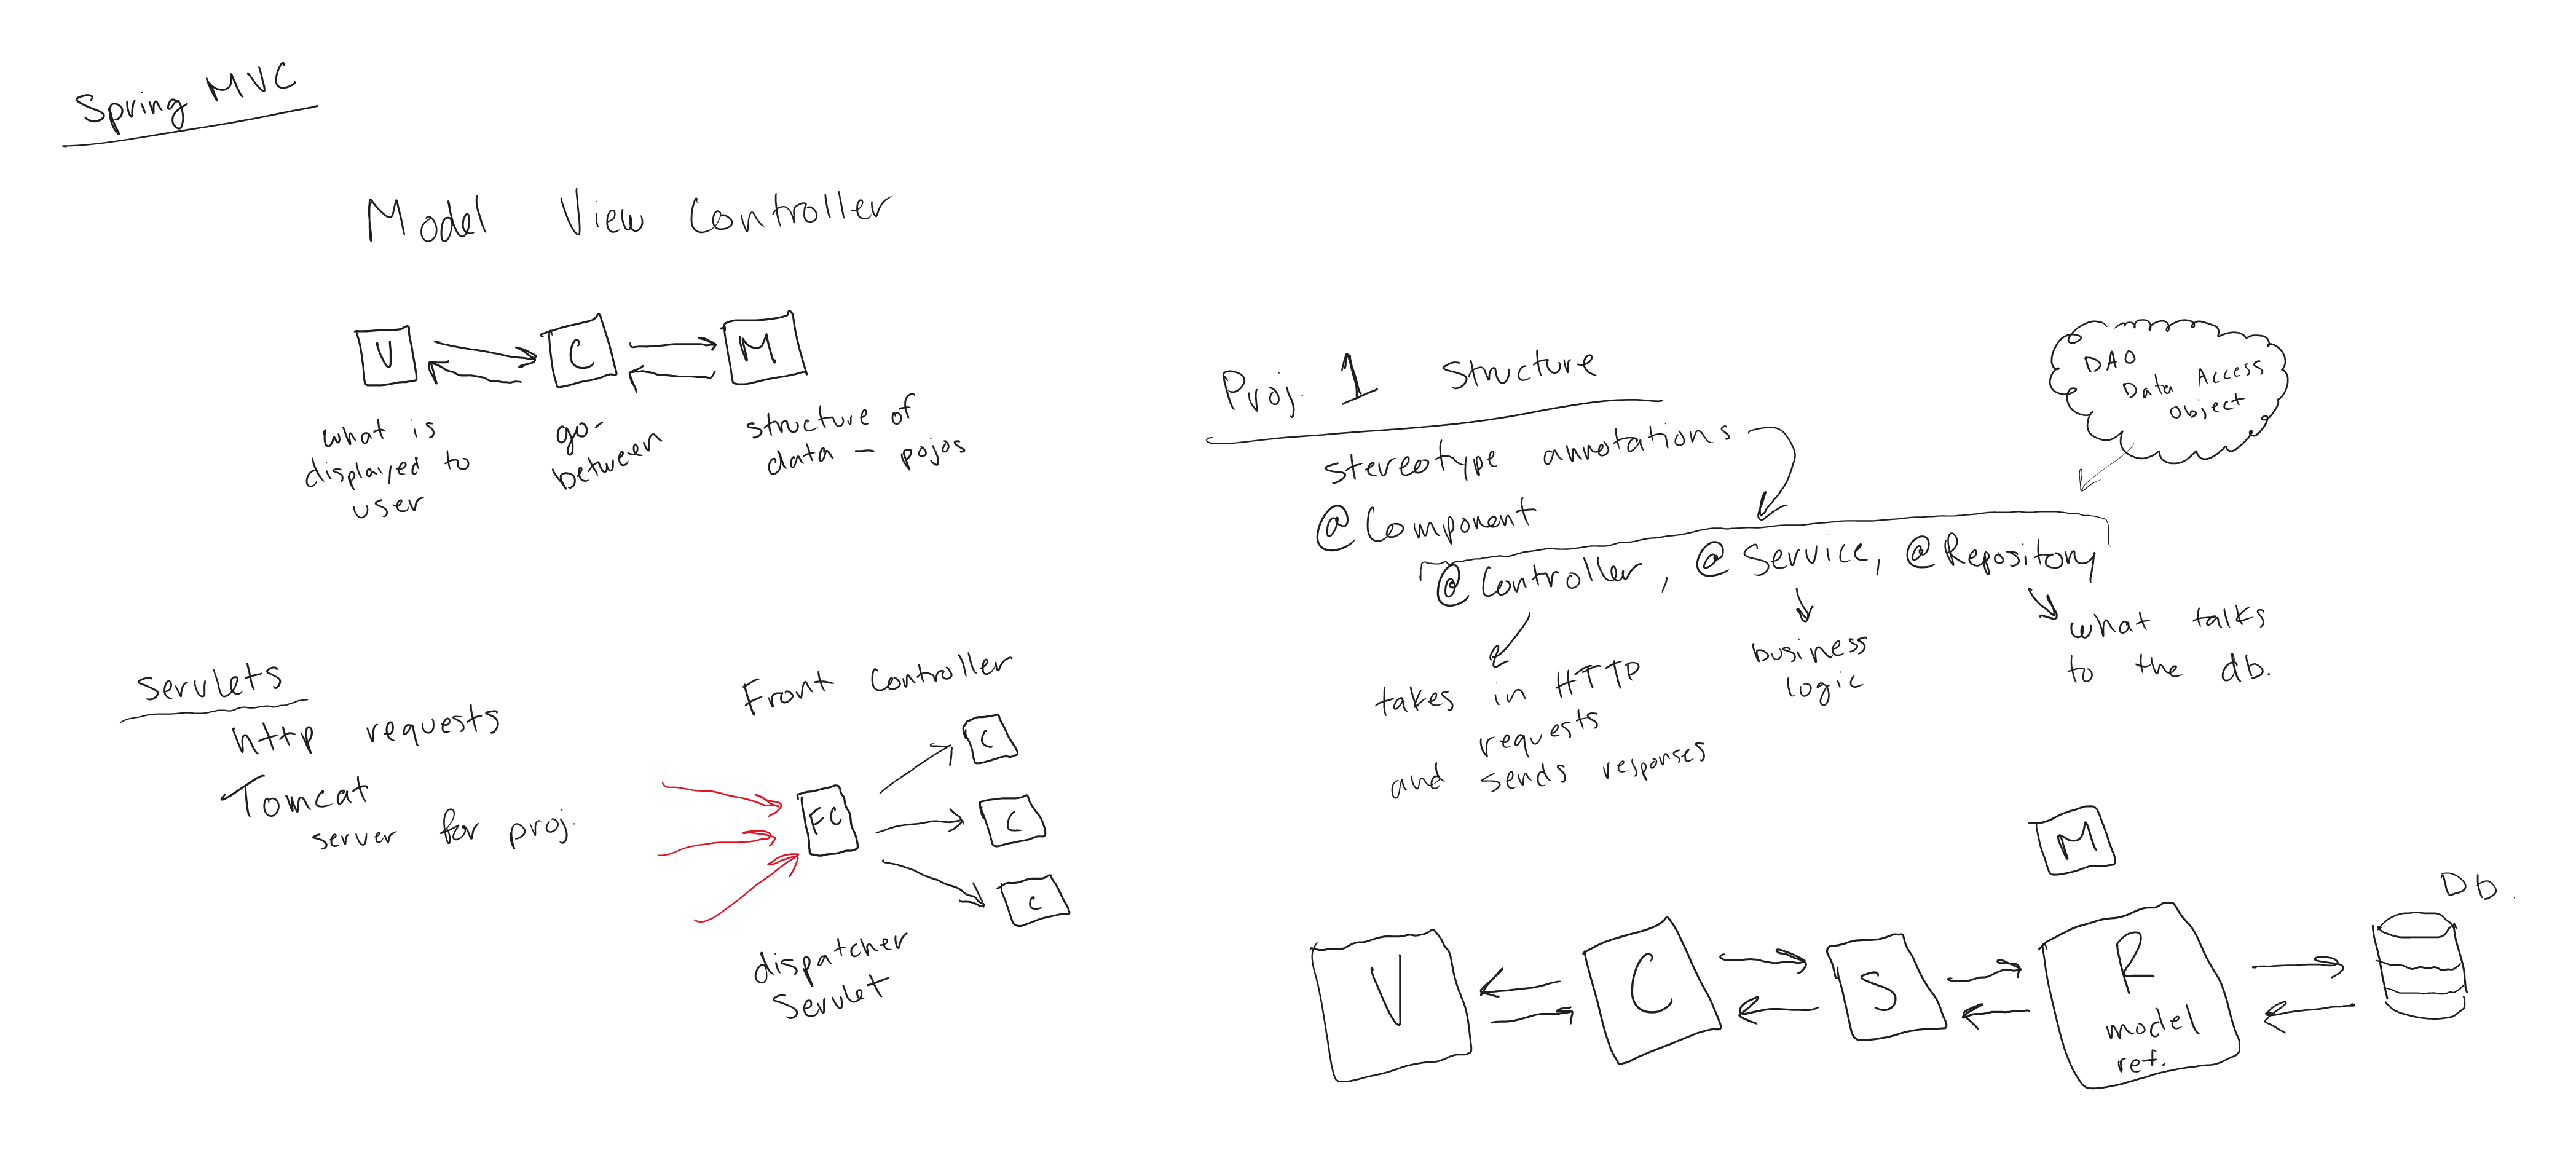 Spring MVC
Model View Controller
V
C
M
what is
displayed to
user
go-
between
structure of
data - pojos
Servlets
http requests
Tomcat
server for proj.
Front Controller
FC
C
C
C
dispatcher
Servlet
Proj. 1 Structure
stereotype annotations
@Component
@Controller, @Service, @Repository
DAO
Data Access
Object
takes in HTTP
requests
and sends responses
business
logic
what talks
to the db.
M
V
C
S
R
model
ref.
Db.